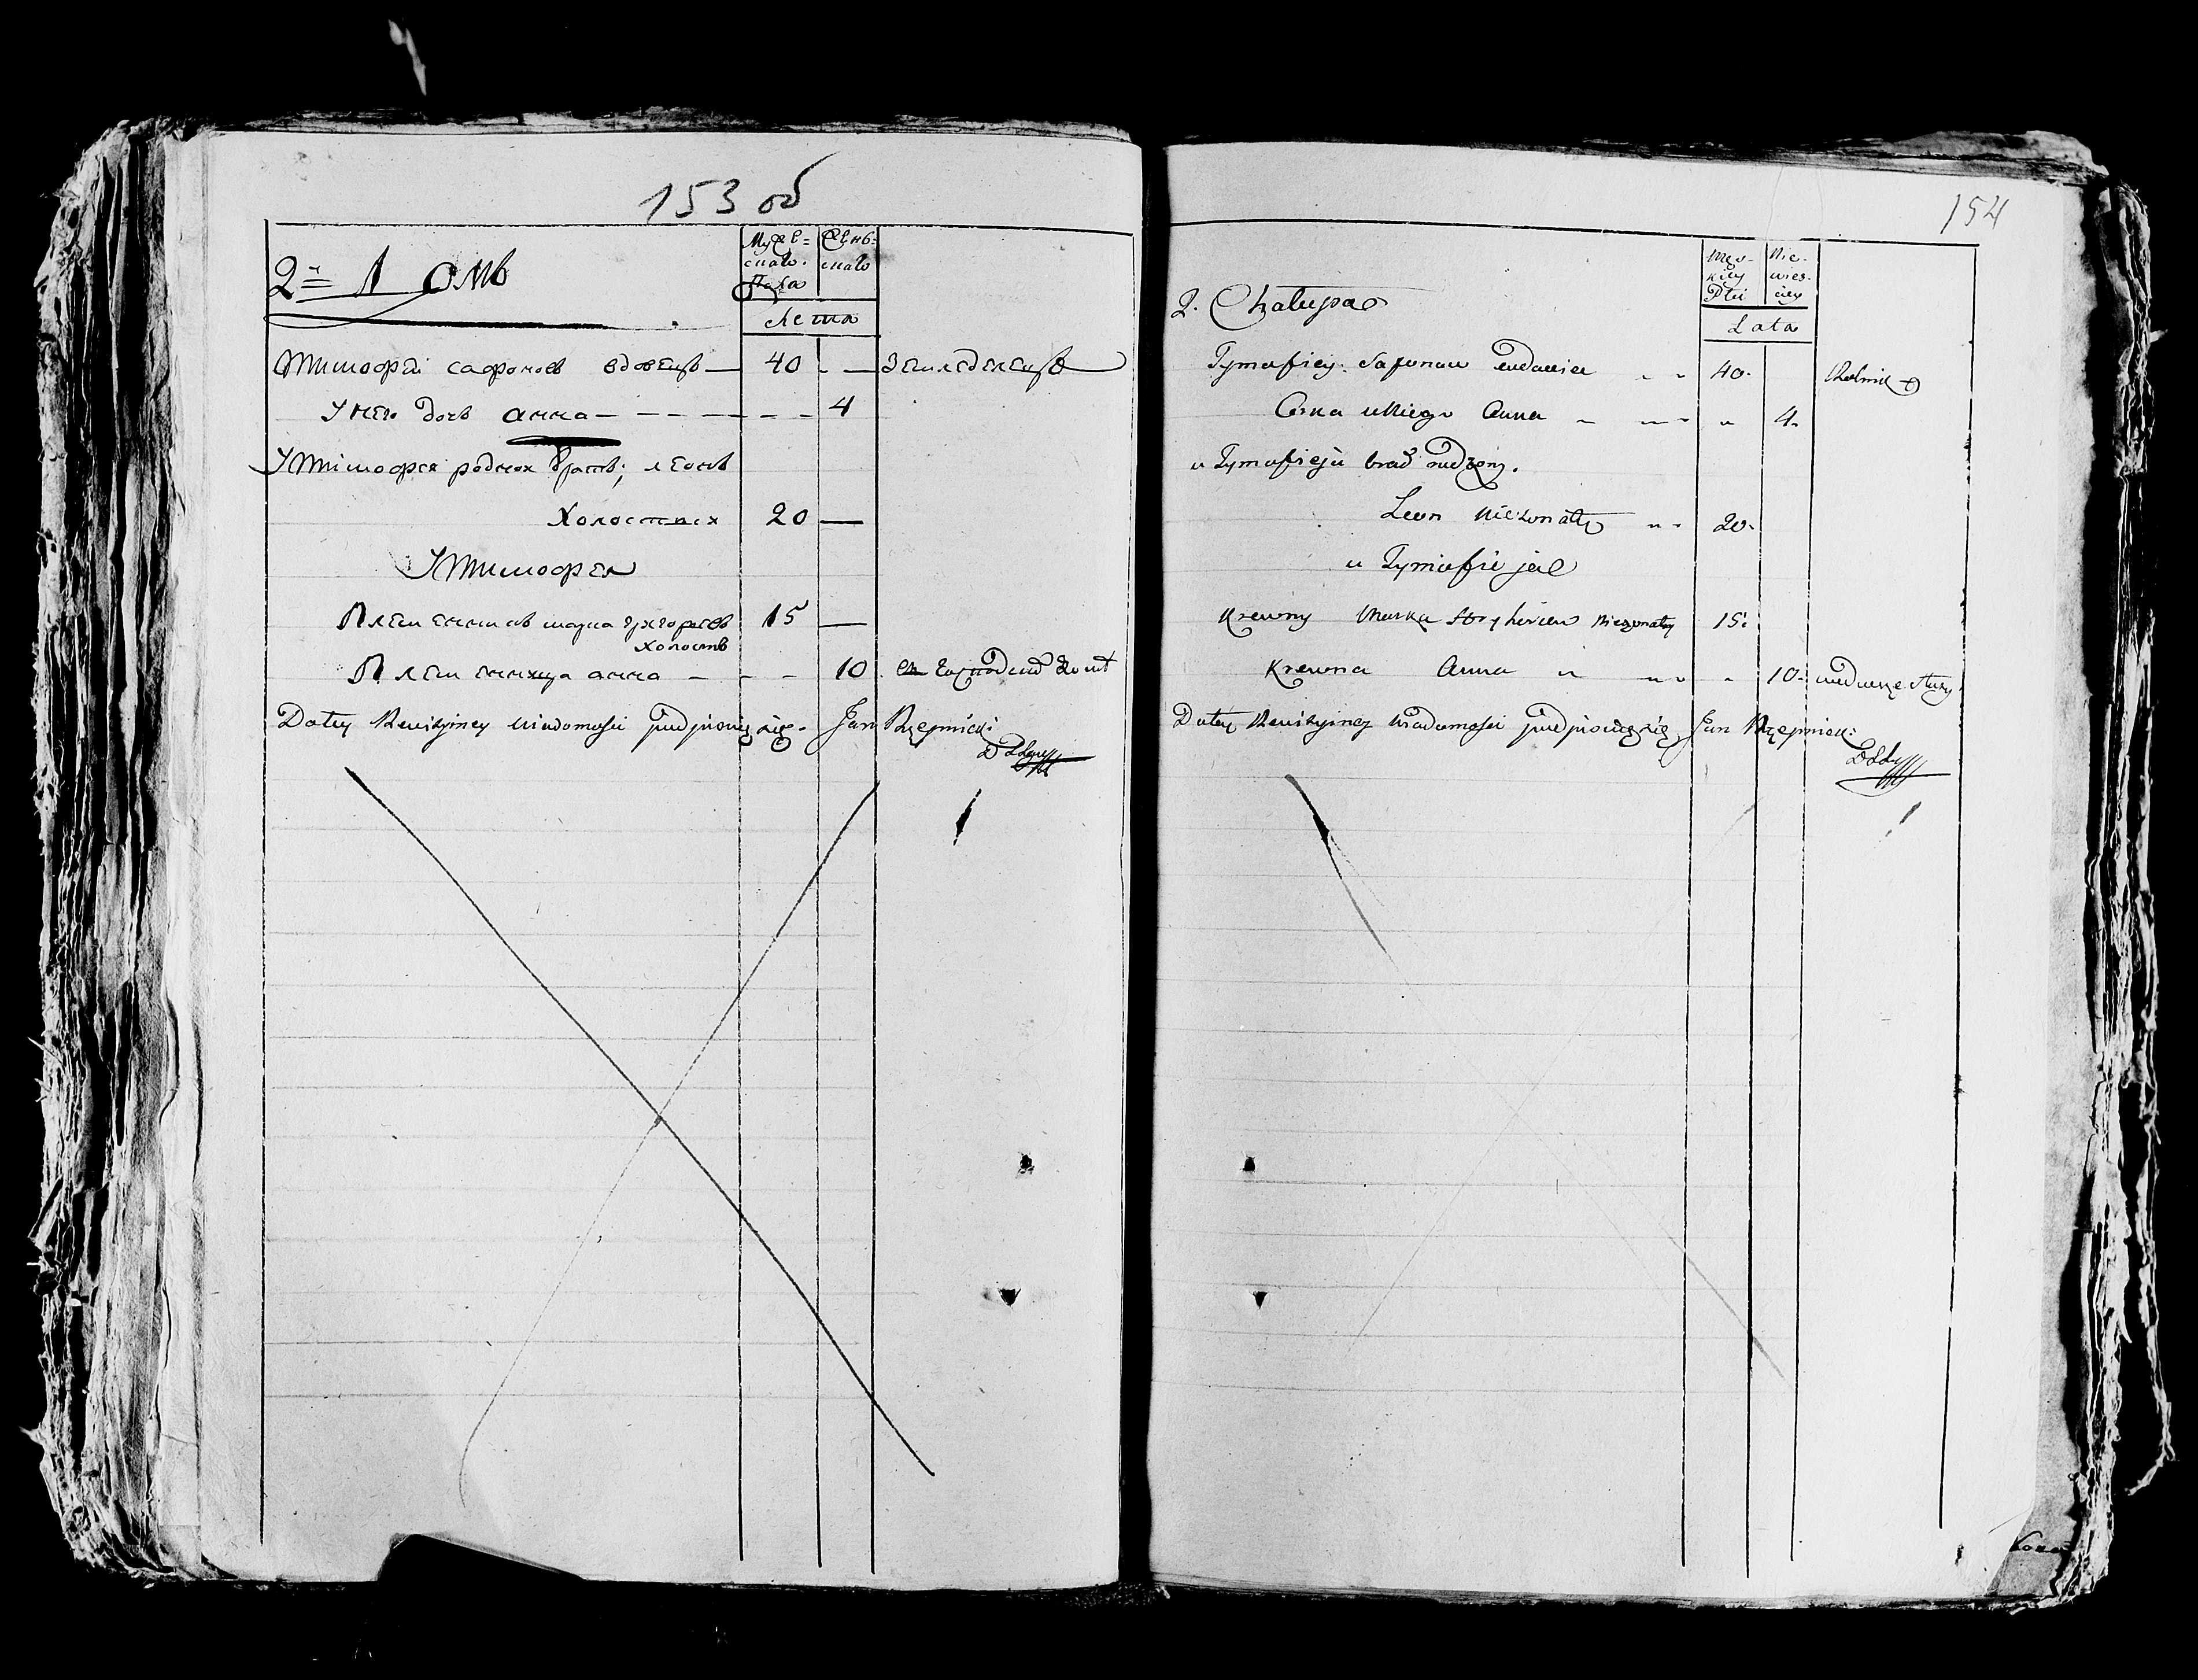 153 об
2й Домъ
Мужескаго Пола
Женьскаго
Лета
Тимофей сафоновъ вдовецъ — 40 — земледелецъ
У него дочь анна — — — 4
У Тимофея родной братъ, леонъ
Холостыхъ 20 —
У Тимофея
Племенникъ марка григорьевъ 15 —
Холостъ
Племенница анна — — — 10
Do tey Rewizyiney wiadomości podpisuię się. Jan Rzepnicki
154
2. Chałupa
Męzkiey Płci
Niewieściey
Lata
Tymofiey Safonow wdowiec 40. Rolnik
Córka u Niego Anna 4.
u Tymofieja brat rodzony.
Leon Nieżonaty 20.
u Tymofieja
Krewny Marka Hryhoriew Nieżonaty 15.
Krewna Anna 10.
Do tey Rewizyiney wiadomości podpisuię się Jan Rzepnicki